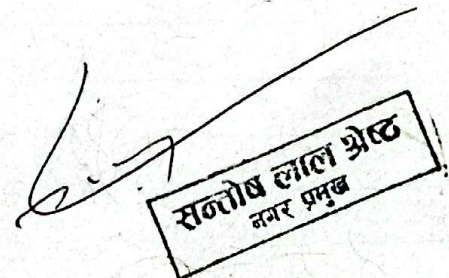 सन्तोष लाल श्रेष्ठ
नगर प्रमुख